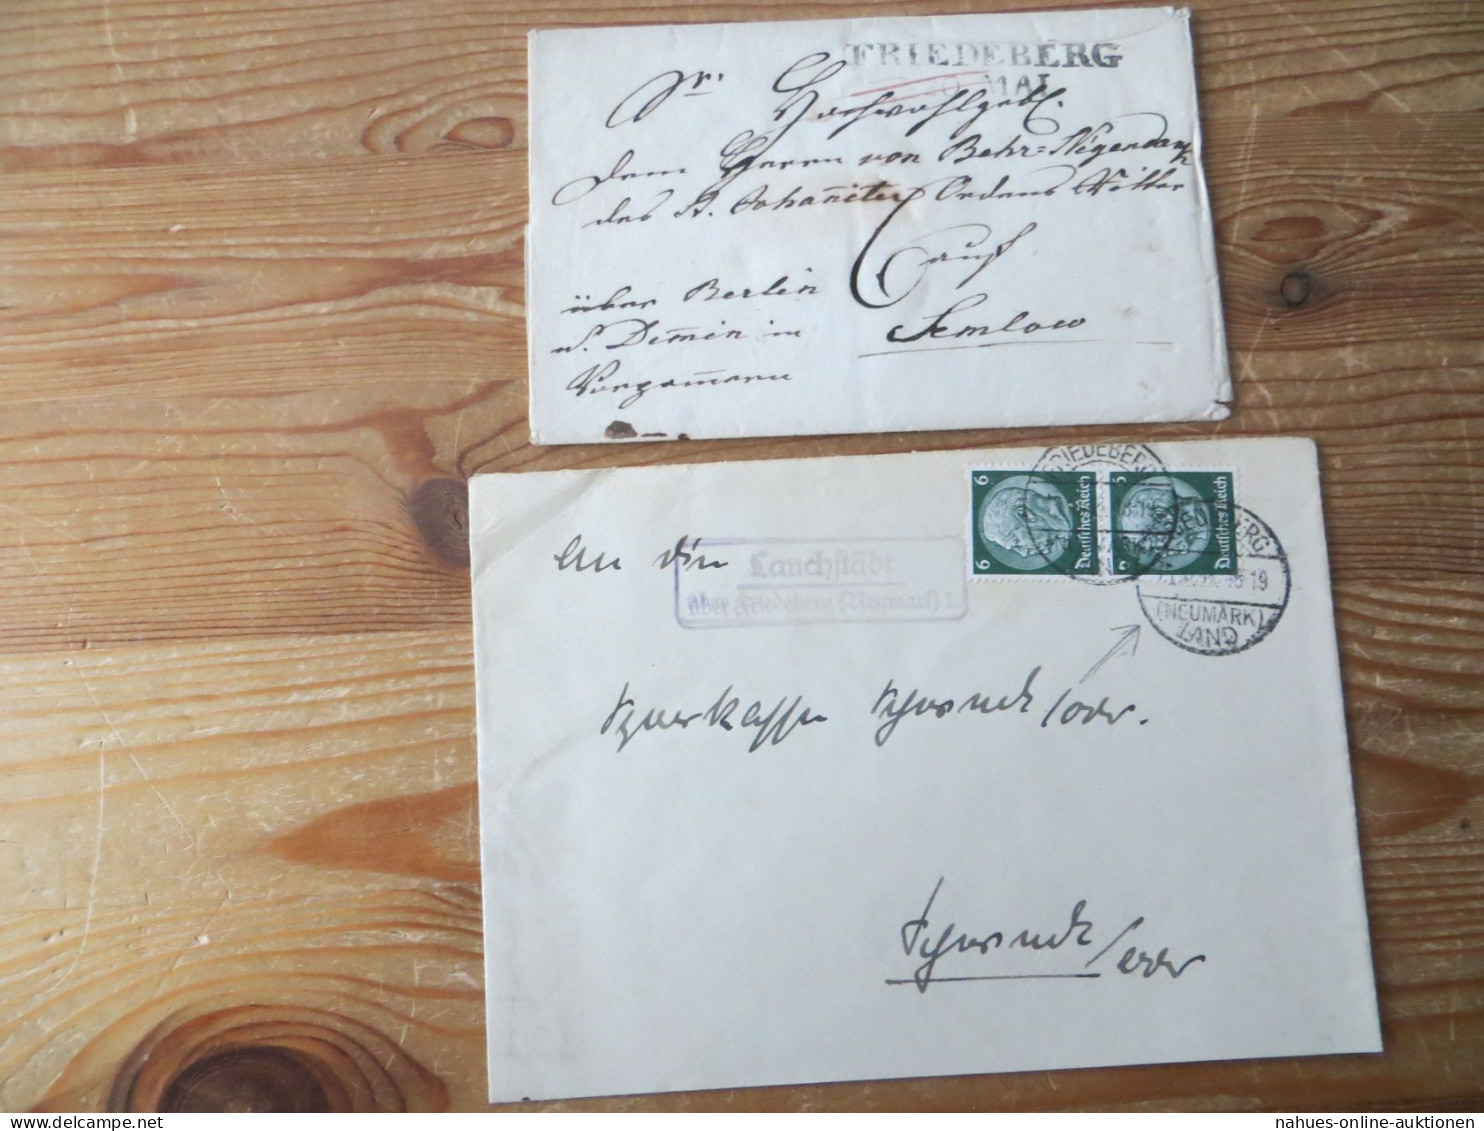 FRIEDEBERG
MAI
Sr. Hochwohlgeb.
dem Herrn von Behr-Negendank
des St. Johanniter Ordens Ritter
auf
Semlow
über Berlin
u. Demin in
Vorpomern
6
6 Deutsches Reich
6 Deutsches Reich
FRIEDEBERG
FRIEDEBERG
(NEUMARK)
LAND
An die
Lauchstädt
über Friedeberg (Neumark) 1
Sparkasse Schwedt/Oder.
Schwedt/Oder
nahues-online-auktionen